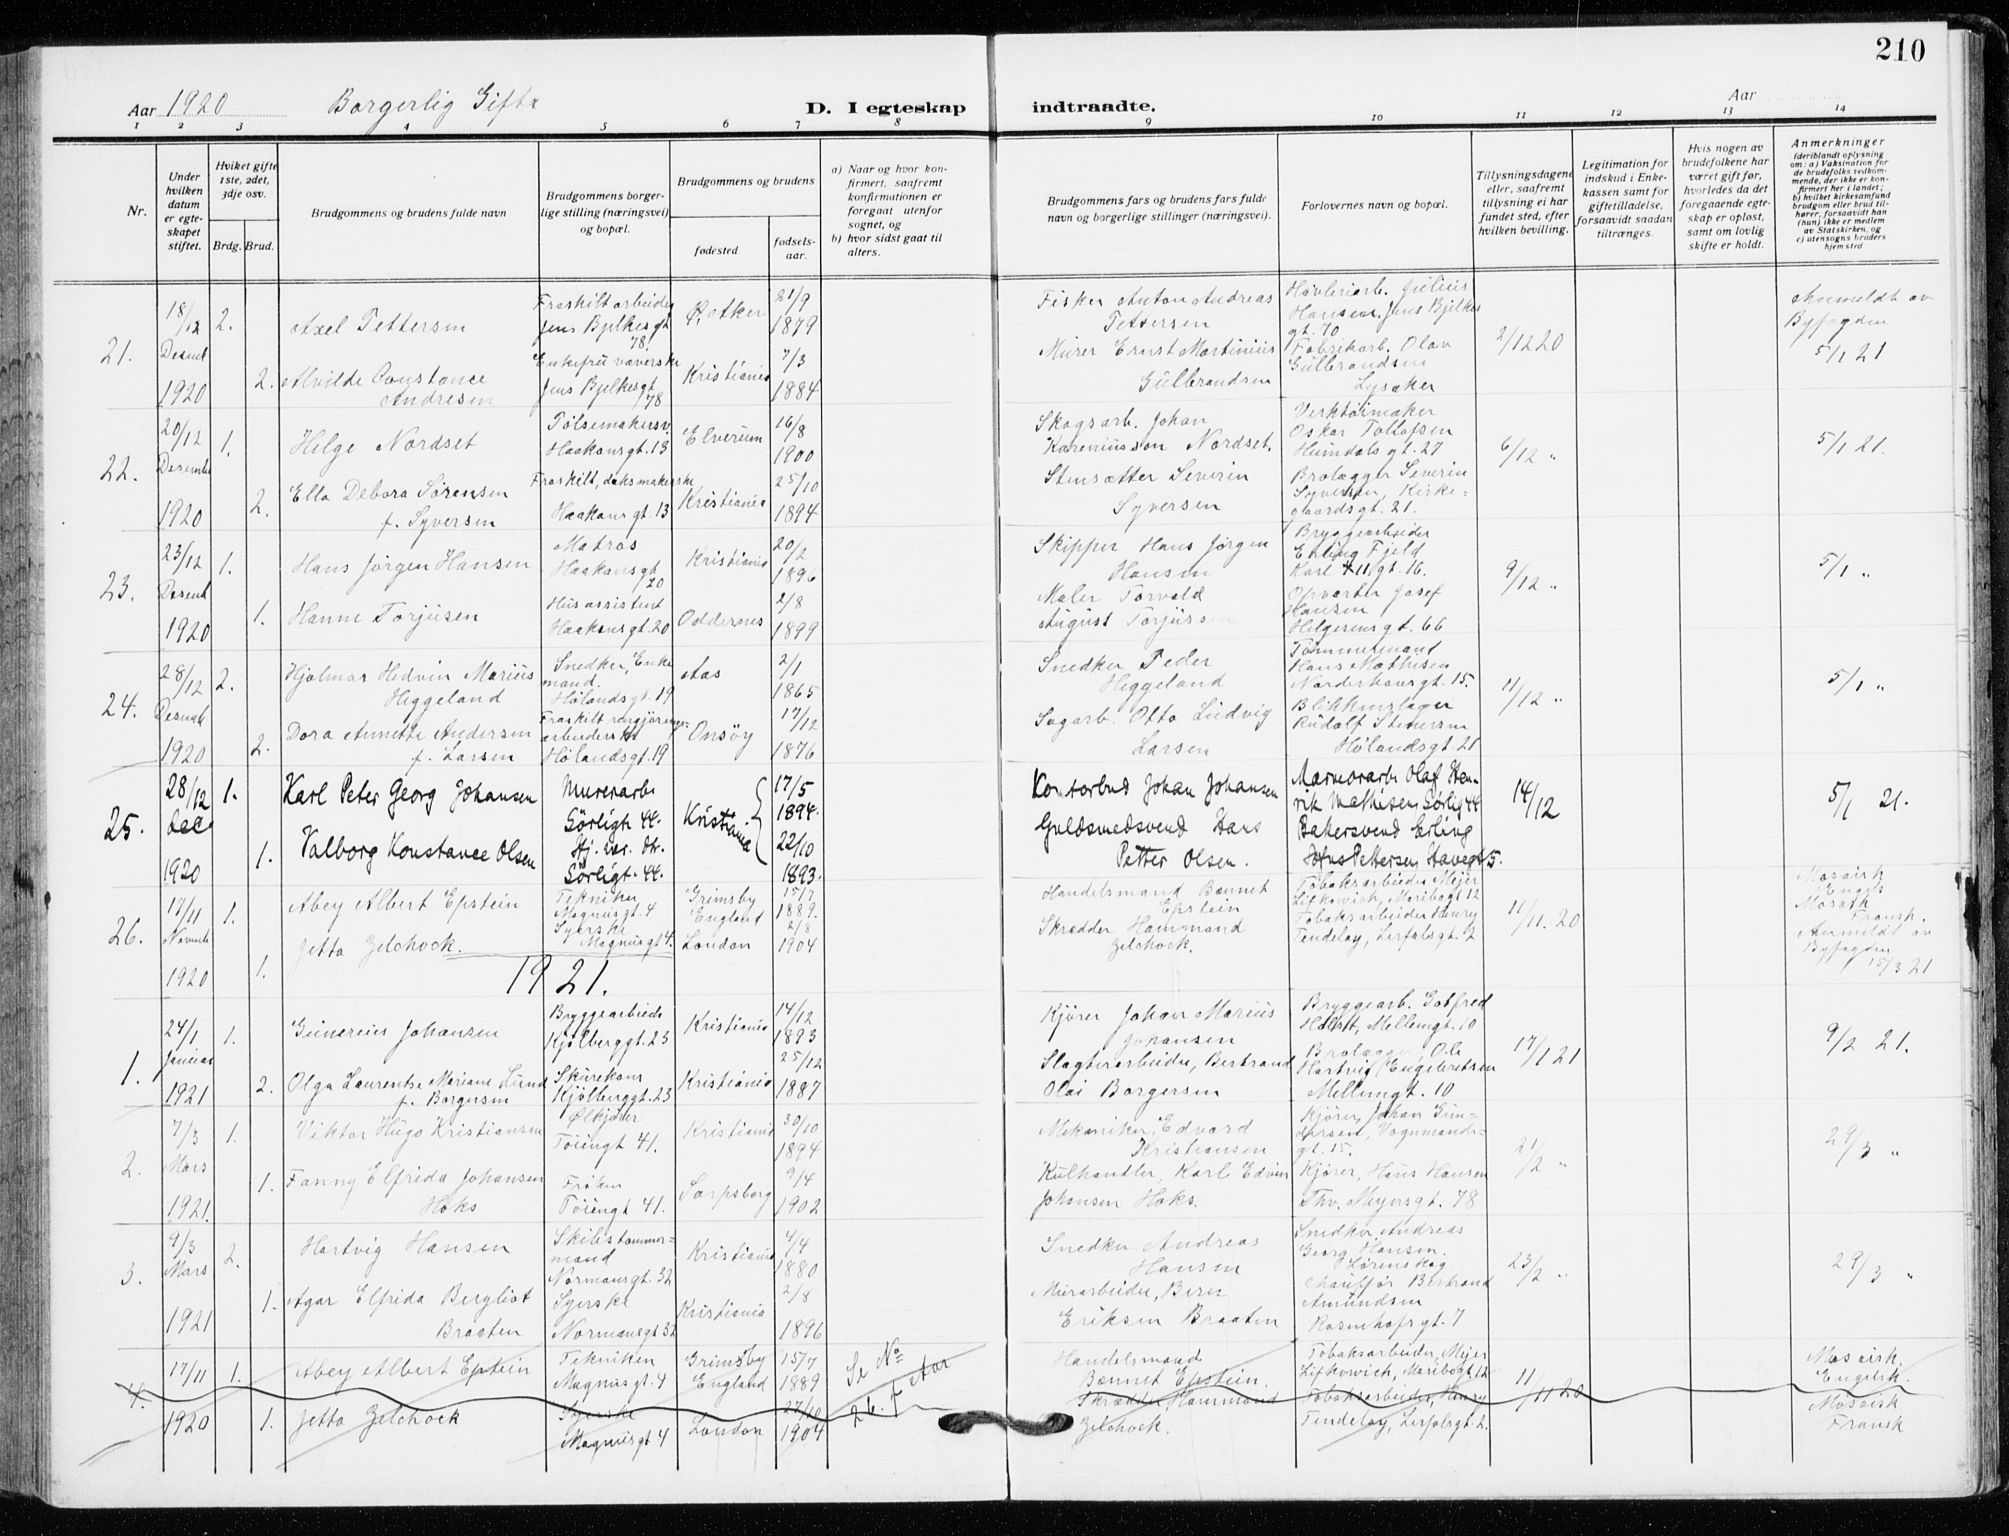 210
Aar 1920 Borgerlig Gifte D. I egteskap indtraadte. Aar
1 2 3 4 5 6 7 8 9 10 11 12 13 14
Nr.
Under hvilken datum er egteskapet stiftet.
Hviket gifte 1ste, 2det, 3dje osv.
Brdg. Brud.
Brudgommens og brudens fulde navn
Brudgommens borgerlige stilling (næringsvei) og bopæl.
Brudgommens og brudens
fødested. fødselsaar.
a) Naar og hvor konfirmert, saafremt konfirmationen er foregaat utenfor sognet, og
b) hvor sidst gaat til alters.
Brudgommens fars og brudens fars fulde navn og borgerlige stillinger (næringsvei).
Forlovernes navn og bopæl.
Tillysningsdagene eller, saafremt tillysning ei har fundet sted, efter hvilken bevilling.
Legitimation for indskud i Enkekassen samt for giftetilladelse, forsaavidt saadan tiltrænges.
Hvis nogen av brudefolkene har været gift før, hvorledes da det foregaaende egteskap er opløst, samt om lovlig skifte er holdt.
Anmerkninger (deriblandt oplysning om: a) Vaksination for de brudefolks vedkommende, der ikke er konfirmert her i landet; b) hvilket kirkesamfund brudgom eller brud tilhører, forsaavidt han (hun) ikke er medlem av Statskirken, og c) utensogns bruders hjemsted
21. 18/12 Desemb 1920 2. Axel Pettersen Fraskilt arbeider Jens Bjelkesgt 78. 21/9 1879 Fisker Anton Andreas Pettersen Høvleriarb. Julius Hansen. Jens Bjelkes gt. 70 2/12 20 Anmeldt av Byfogden 5/1 21
2. Alvilde Constance Andresen Enkefru væverske Jens Bjelkesgt 78 Kristiania 7/3 1884 Murer Ernst Martinius Gulbrandsen Fabrikarb. Olav Gulbrandsen Lysaker
22. 20/12 Desembe 1920 1. Helge Nordset Pølsemakersv. Haakonsgt. 13 Elverum 16/8 1900 Skogsarb. Johan Kareniusson Nordset. Verktøimaker Oskar Tollefsen Heimdalsgt. 27 6/12 " 5/1 21.
2. Ella Debora Sørensen f. Syversen Fraskilt, Haakonsgt. 13 Kristiania 25/10 1894 Stensætter Severin Syversen Brolægger Severin Syversen, Kirkegaardsgt. 21.
23. 23/12 Desemb 1920 1. Hans Jørgen Hansen Matros Haakonsgt 20 Kristiania 20/2 1896 Skipper Hans Jørgen Hansen Bryggearbeider Erling Fjeld Karl 11 gt. 16. 9/12 " 5/1 "
1. Hanne Torjusen Husassistent Haakonsgt. 20 Oddernes 2/8 1899 Maler Torvald August Torjussen Opvarter Josef Hansen Helgesensgt. 66
24. 28/12 Desembe 1920 2. Hjalmar Hedvin Marius Heggeland Snedker, Enkemand. Hølandsgt. 19 Aas 2/1 1865 Snedker Peder Heggeland Tømmermand Hans Mathisen Norderhovsgt. 15. 11/12 " 5/1 "
2. Dora Annette Andersen f. Larsen Fraskilt rengjøringsarbeiderske Hølandsgt. 19 Onsøy 17/12 1876 Sagarb. Otto Ludvig Larsen Blikkenslager Rudolf Stenersen Hølandsgt. 21
25. 28/12 Dec 1920 1. Karl Peter Georg Johansen Murerarb. Sørligt. 44. Kristiania 17/5 1894. Kontorbud Johan Johansen Marmorarb. Olaf Henrik Mathisen Sørligt 44 14/12 5/1 21.
1. Valborg Konstance Olsen Sørligt. 44. 22/10 1893. Guldsmedsvend Hans Petter Olsen. Bakersvend Erling Johs Pettersen Stavegt 5.
26. 17/11 Novembe 1920 1. Abey Albert Epstein Tekniker Magnusgt. 4 Grimsby England 15/7 1889. Handelsmand Bennet Epstein Tobaksarbeider Mejer Lifkowich, Maribogt 12 11/11. 20 Mosaisk Engelsk Mosaisk Fransk. Anmeldt av Byfogden 15/3 21
1. Jetta Zelchock. Syerske Magnusgt 4. London 2/8 1904 Skrædder Hammand Zelchock. Tobaksarbeider Henry Tendelay, Lerfolsgt. 2
1921.
1. 24/1 Januar 1921 1. Gunerius Johansen Bryggearbeider Kjølberggt. 23 Kristiania 14/12 1893 Kjører Johan Marius Johansen Bryggearb. Gotfred Holst, Mellemgt. 10 17/1 21 9/2 21.
2. Olga Laurentse Mariane Lund f. Borgersen Skurekone Kjølberggt. 23 Kristiania 25/12 1887 Slagteriarbeider, Bertrand Olai Borgersen Brolægger, Ole Hartvig Engebretsen Mellemgt. 10
2. 7/3 Mars 1921. 1. Viktor Hugo Kristiansen Ølkjører Tøiengt 41. Kristiania 30/10 1894 Mekaniker, Edvard Kristiansen Kjører, Johan Gundersen, Vognmandsgt. 15. 21/2 " 29/3 "
1. Fanny Elfrida Johansen Hoks Frøken Tøiengt 41. Sarpsborg 9/4 1902 Kulhandler, Karl Edvin Johansen Hoks. Kjører, Hans Hansen Thv. Meyersgt. 78
3. 9/3 Mars 1921 2. Hartvig Hansen Skibstømmermand Normansgt. 32 Kristiania 4/4 1880 Snedker Andreas Hansen Snedker Andreas Georg Hansen. Lørenskog 23/2 " 29/3 "
1. Agar Elfrida Bergliot Braaten Syerske Normansgt 32 Kristiania 2/8 1896 Murarbeider, Bern Eriksen Braaten Chauffør Bertrand Amundsen Rosenhofsgt. 7
4. 17/11 1920 1. Abey Albert Epstein Tekniken Magnusgt. 4 Grimsby England 15/7 1889 Se No 26. F Aar Handelsmand Bennet Epstein. Tobaksarbeider, Mejer Lifkowich, Maribogt. 12 11/11 20 Mosaisk. Engelsk.
1. Jetta Zelchock Syerske Magnusgt 4 London 27/10 1904 Skrædder Hammand Zelchock. Tobaksarbeider, Henry Tendelay, Lerfolsgt 2. Mosaisk Fransk